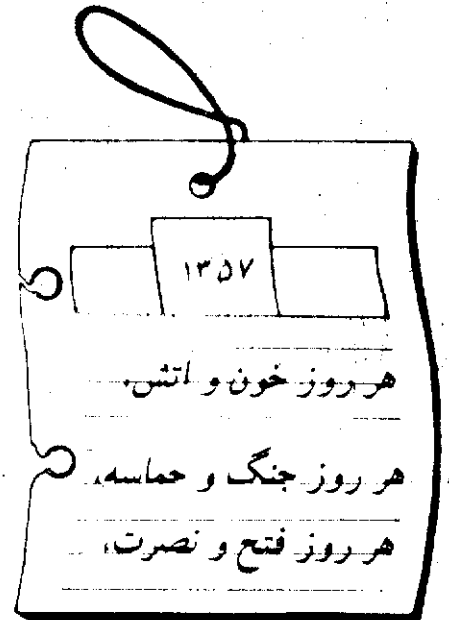 ۱۳۵۷
هر روز خون و اتش.
هر روز جنگ و حماسه،
هر روز فتح و نصرت،